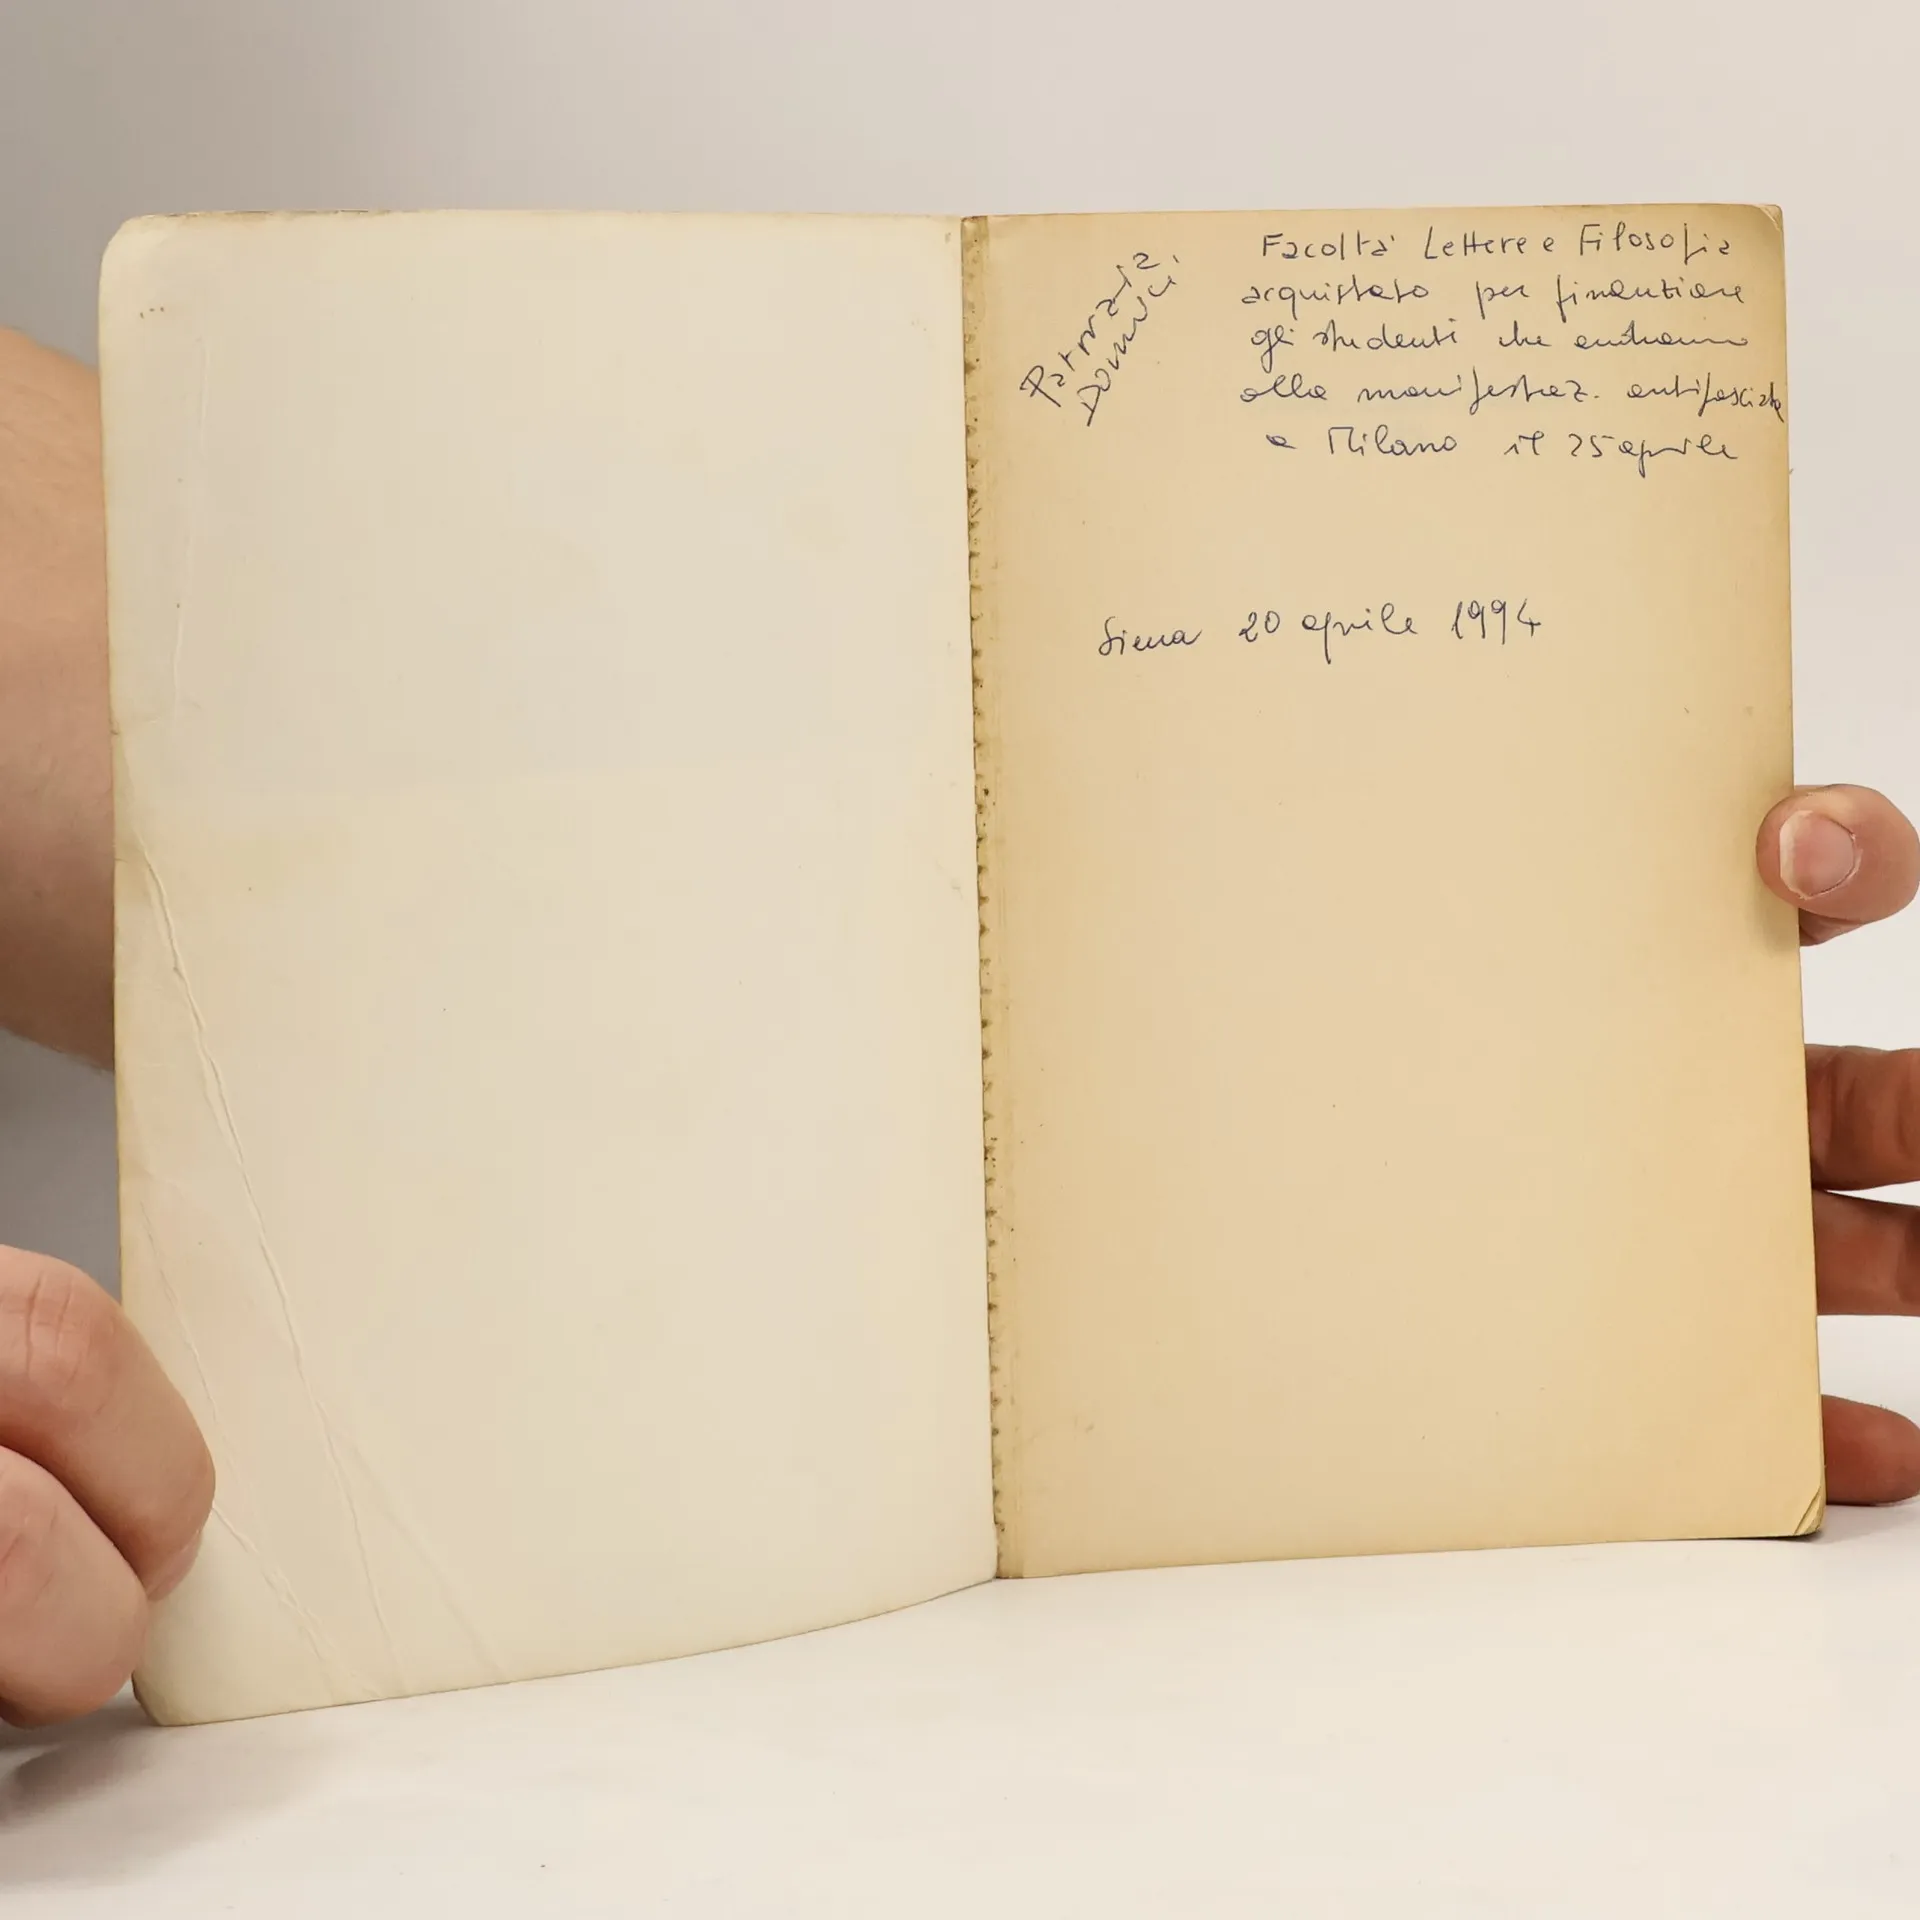 Patrizia
Facoltà Lettere e Filosofia
acquistato per finanziare
gli studenti che andranno
alla manifestaz. antifascista
a Milano il 25 aprile
Siena 20 aprile 1994